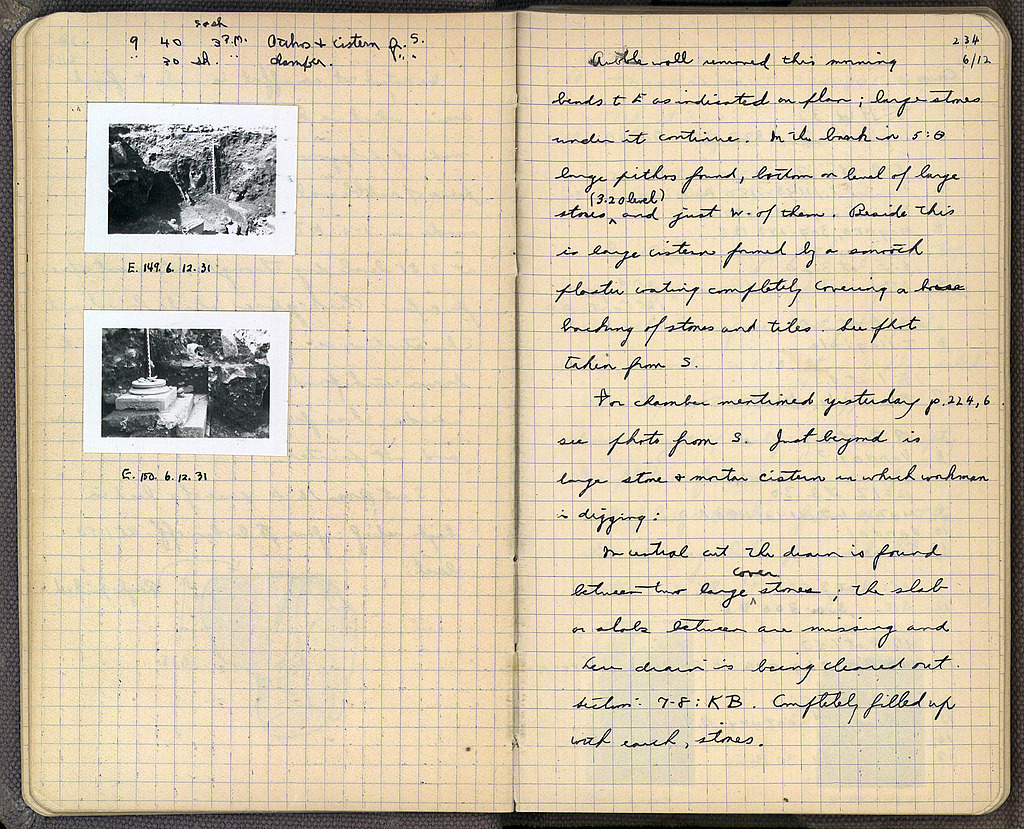 9 40 3 P.M. Pithos & cistern fr. S.
" 30 sh. " chamber. " "
E. 149. 6. 12. 31
E. 150. 6. 12. 31
234
6/12
wall removed this morning
bends to E as indicated on plan; large stones
under it continue. In the bank in 5:Θ
large pithos found, bottom on level of large
(3.20 level)
stones, and just W. of them. Beside this
is large cistern formed by a smooth
plaster coating completely covering a
backing of stones and tiles. See phot
taken from S.
For chamber mentioned yesterday p. 224, 6
see photo from S. Just beyond is
large stone & mortar cistern in which workman
is digging:
In central cut the drain is found
cover
between two large stones; the slab
or slabs between are missing and
here drain is being cleared out.
section: 7-8: KB. Completely filled up
with earth, stones.